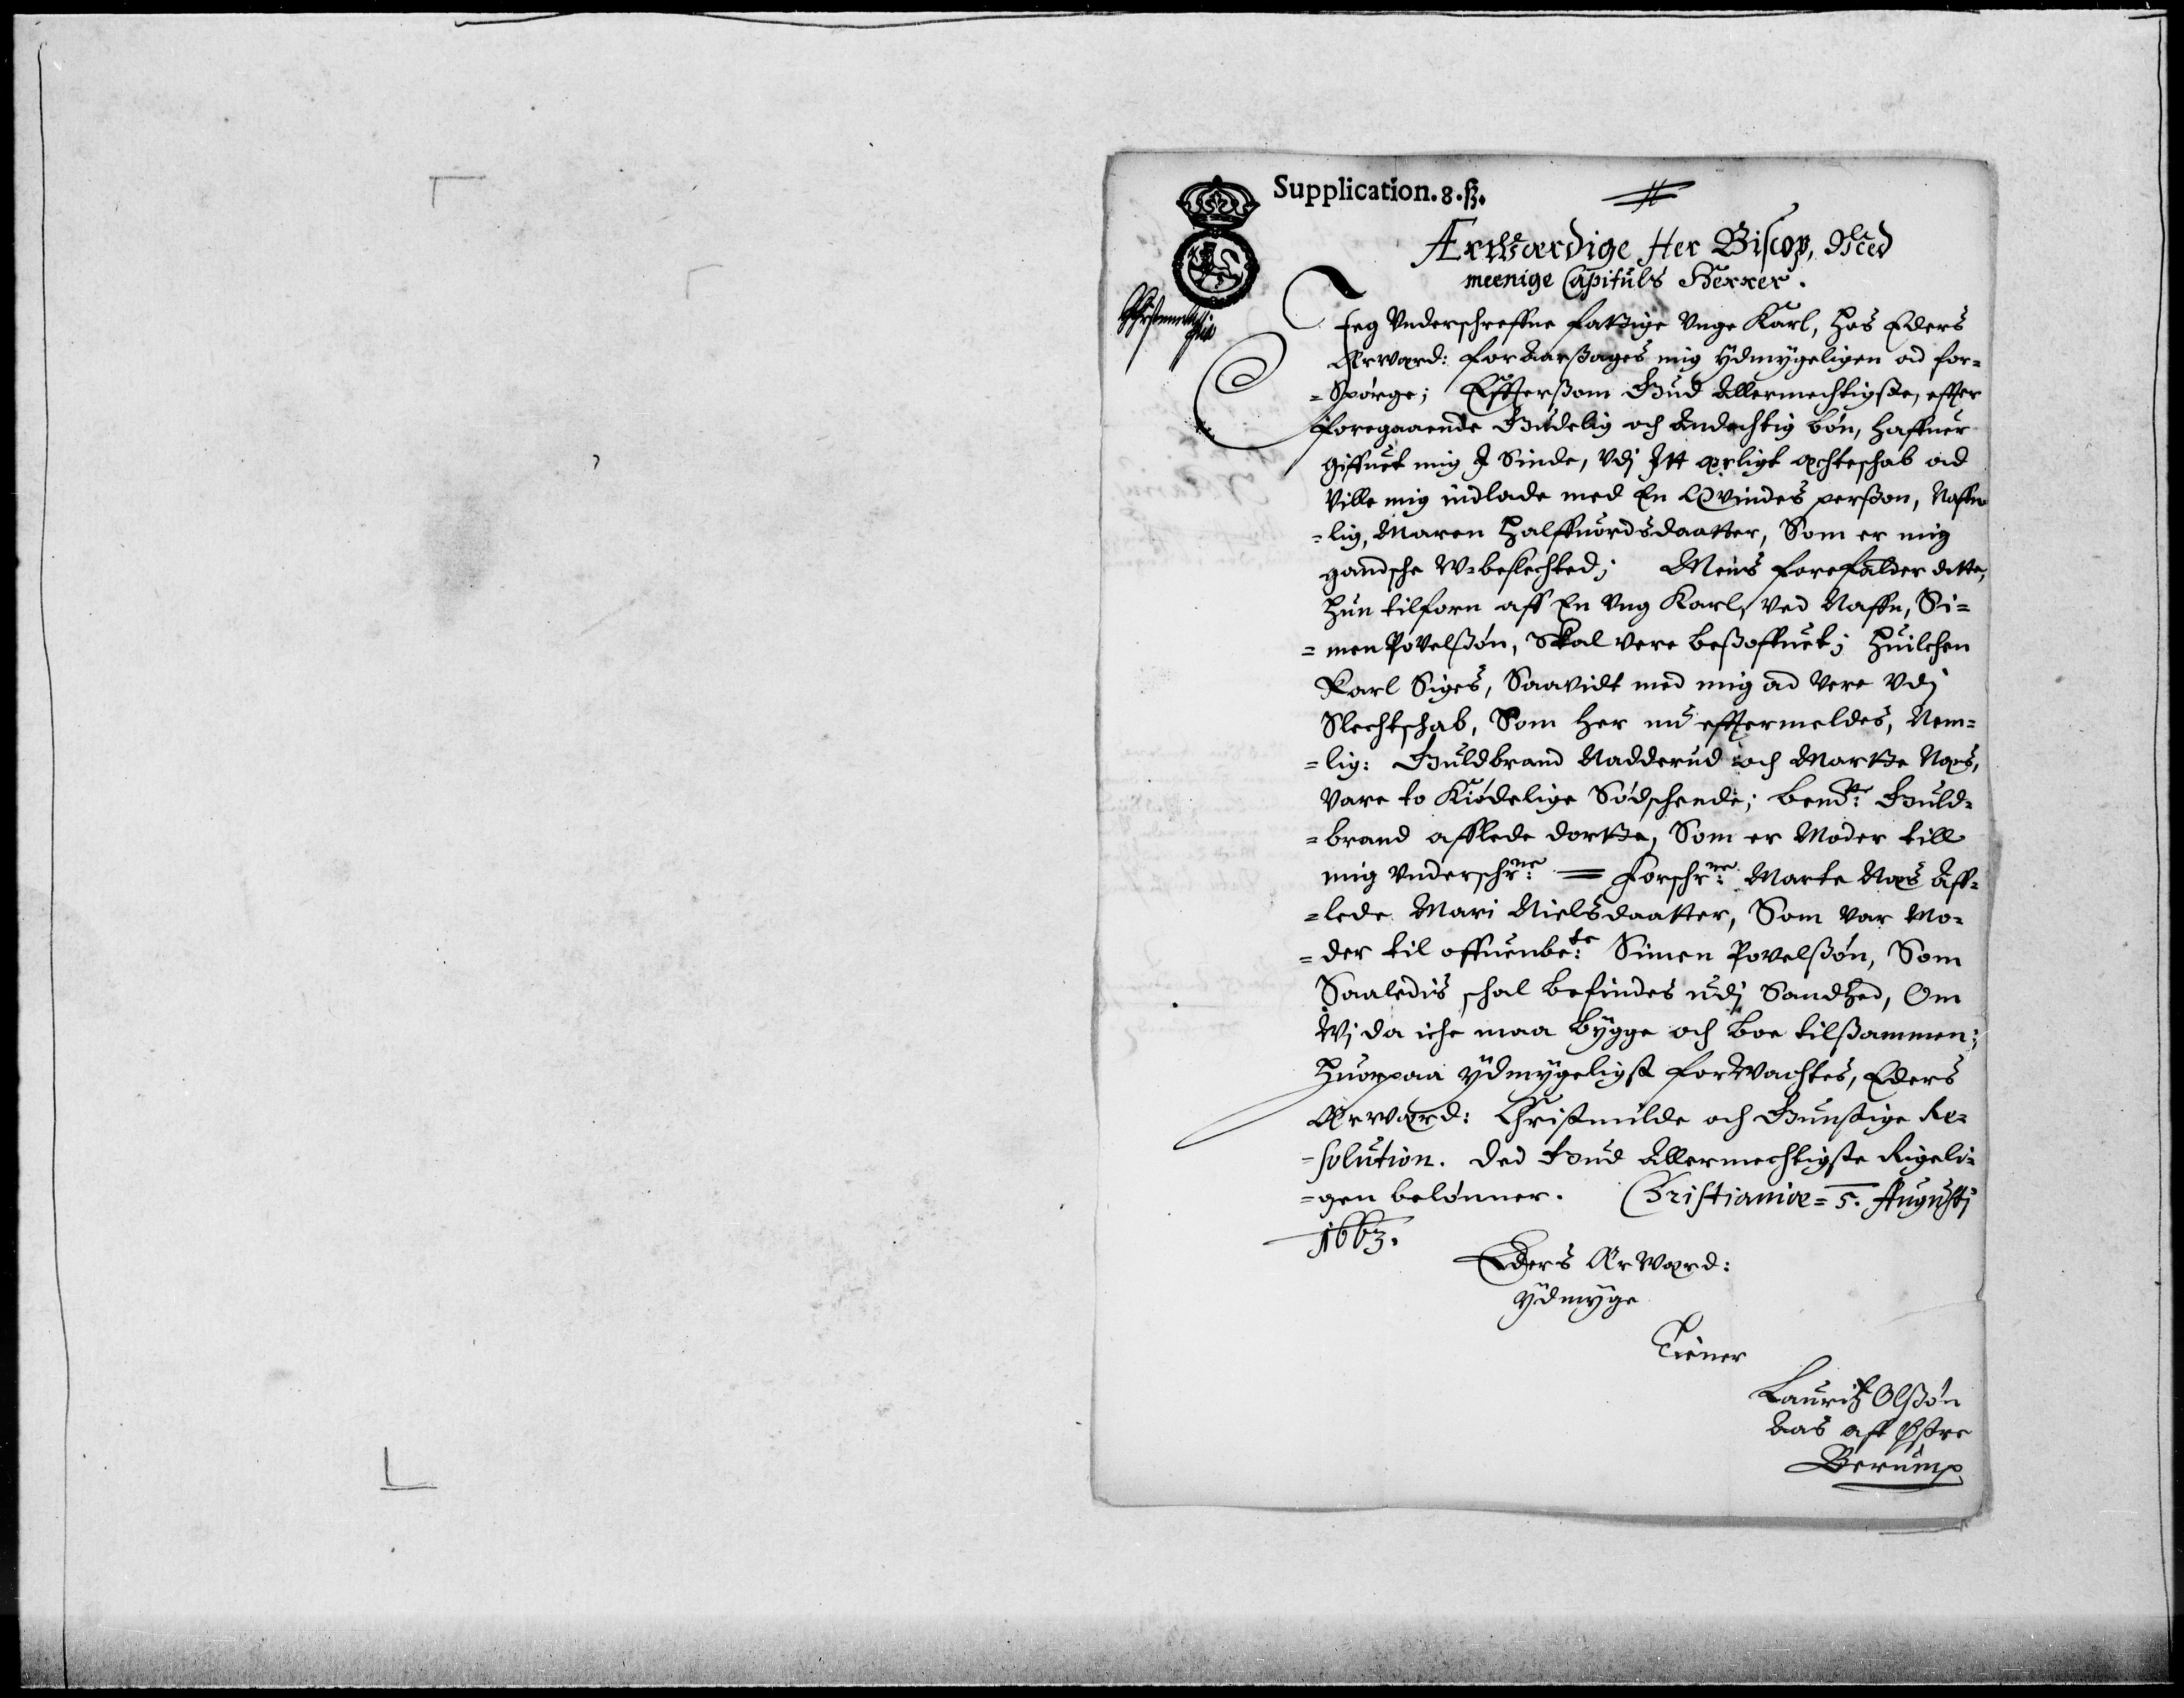 Supplication. 8. ß.
Ærwærdige Her Biscop, Med
meenige Capituls Herrer.
Jeg Underschreffne fattige Unge Karl, Hos Eders
Ærværd: foraarßages mig ydmygeligen ad for-
=Spörge; Effterßom Gud Allermechtigste, effter
foregaaende Gudelig och Andechtig bön, haffuer
giffuet mig J Sinde, Udj Itt ærligt æchteschab ad
Ville mig indlade med En Qvindes perßon, Naffn-
=lig, Maren Halffuordsdaatter, Som er mig
gandsche W-beslechted; Mens forefalder dette,
Hun tilforn aff En Ung Karl, ved Naffn, Si=
=men Povelßön, Skal vere besoffuet; Huilchen
Karl Siges, Saavidt med mig ad vere Udj
Slechtschab, Som her nu efftermeldes, Nem=
=lig: Guldbrand Nadderud och Marthe Næs,
Vare to Kiödelige Södschende; bemte: Guld=
=brand afflede dorthe, Som er Moder till
mig Underschrne: = Forschrne: Marte Næs Aff=
=lede Mari Nielsdaatter, Som var Mo=
=der til offuenbete: Simen Povelßön, Som
Saaledis schal befindes udj Sandhed, Om
Wj da iche maa bygge och boe tilßammen;
Huorpaa ydmygeligst forWachtes, Eders
Ærværd: Christmilde och Gunstige Re=
=solution. Ded Gud Allermechtigste Rigeli=
=gen belönner. Christianiæ = 5. Augustj
1663.
Eders ÆrVærd:
ydmyge
Tiener
Lauritz Olßön
Aas aff Østre
Berump